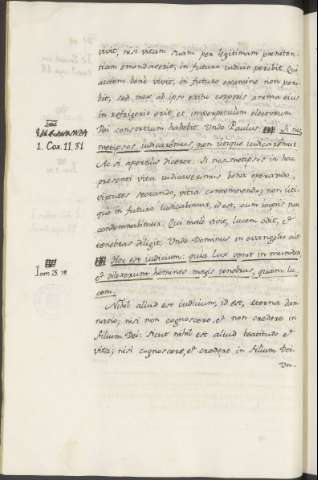 vivit, nisi vitam suam per legitimam pœniten-
tiam emendaverit, in futuro iudicio peribit. Qui
autem bene vivit, in futuro examine non peri-
bit, sed mox ab ipso exitu corporis anima eius
in refrigerio erit, et in perpetuum electorum
Dei consortium habebit. Unde Paulus: Si nos
1. Cor. 11. 31
metipsos iudicaremus, non utique iudicaremur.
Ac si aperte diceret: Si nosmetipsos in hac
praesenti vita iudicaremus bona operando,
virtutes sectando, vitia contemnendo; non uti-
que in futuro iudicabimur, id est, cum impiis non
condemnabimur. Qui male vivit, lucem odit, et
tenebras diligit. Unde Dominus in evangelio ait
Hoc est iudicium: quia Lux venit in mundum
et dilexerunt homines magis tenebras, quam lu-
cem.
Nihil aliud est iudicium, id est, aeterna dam
natio; nisi non cognoscere, et non credere in
Filium Dei: Sicut nihil est aliud beatitudo et
vita; nisi cognoscere, et credere in Filium Dei.
Un-